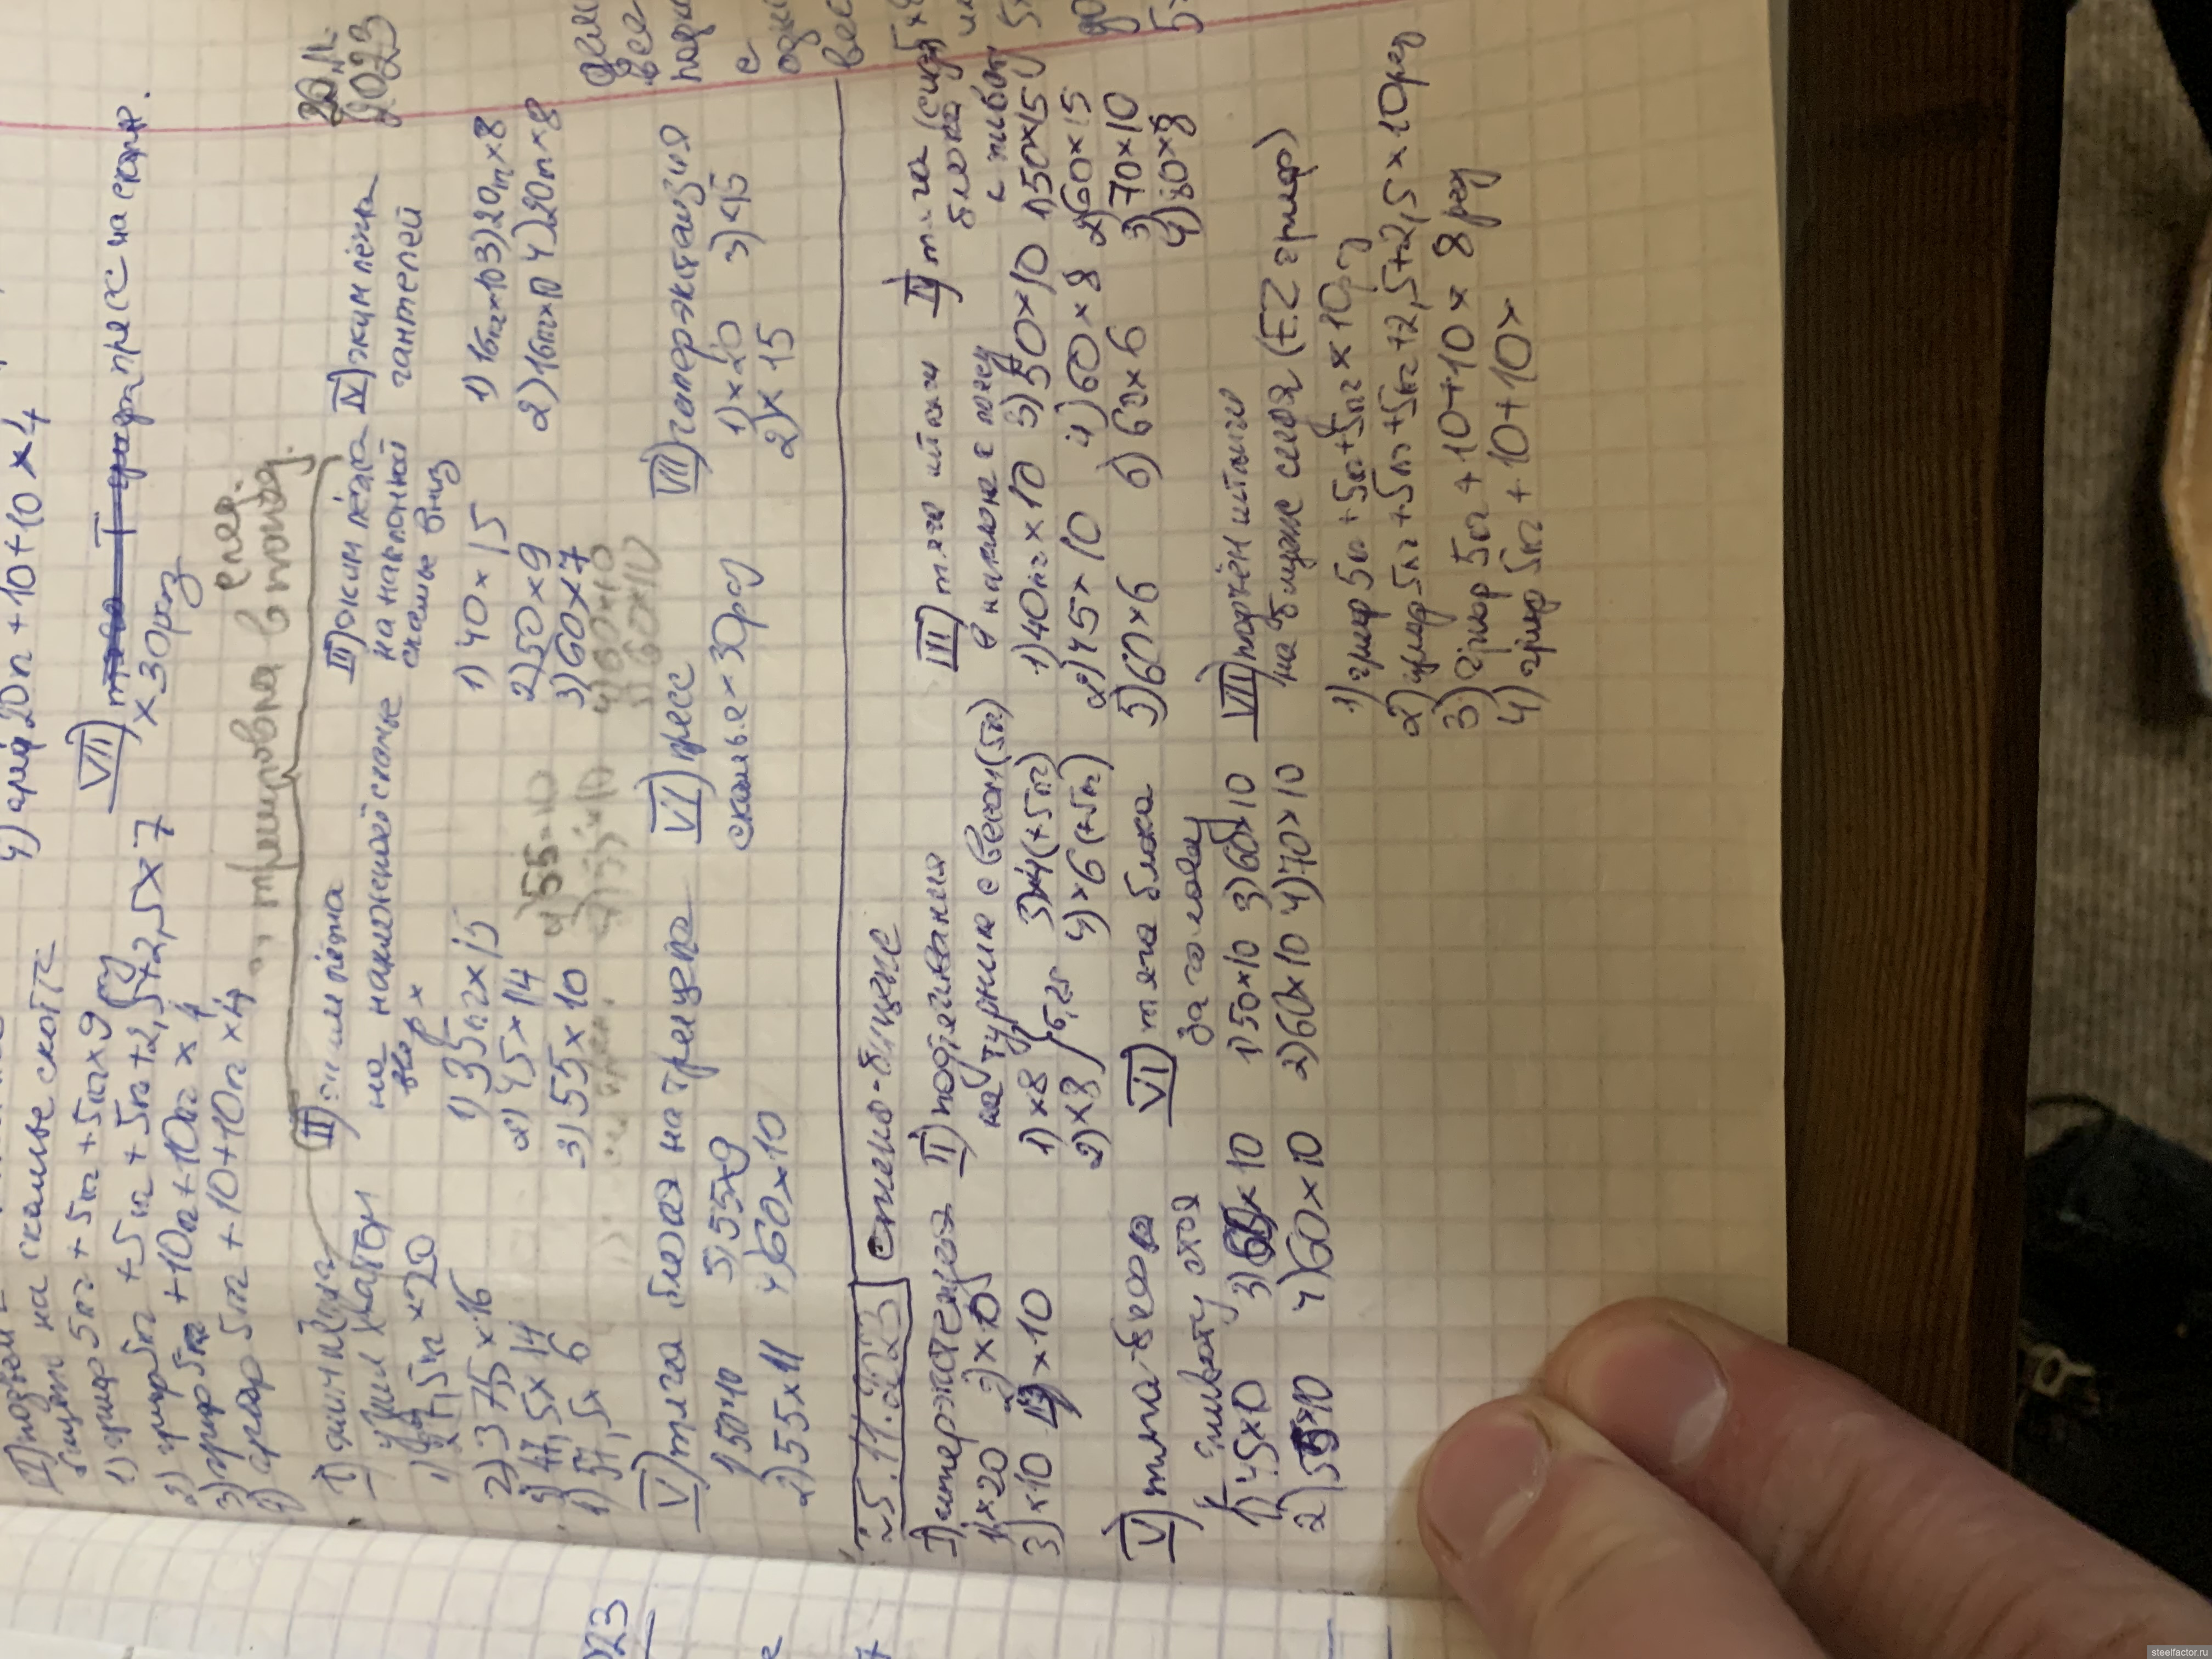 4) гриф 20кг + 10+10 x 4
на скамье скотта
1) гриф 5кг + 5кг + 5кг x 9
2) гриф 5кг + 5кг + 5кг + 2,5+2,5 x 7
3) гриф 5кг + 10кг + 10кг x 4
4) гриф 5кг + 10+10кг x 4
VII) пресс на скам.
x 30 раз
след. тренировка в понед.
20.11.2023
жим лёжа
на наклонной скамье
1) 35кг x 15
2) 45 x 14
3) 55 x 10
4) 55 x 10
III) жим лёжа
на наклонной
скамье вниз
1) 40 x 15
2) 50 x 9
3) 60 x 7
4) 60x10
5) 60x10
IV) жим лёжа
гантелей
1) 16кг x 10 3) 20кг x 8
2) 16кг x 10 4) 20кг x 8
V) тяга блока на трицепс
1) 50x10 3) 55x9
2) 55 x 11 4) 60 x 10
VI) пресс
скамья x 30 раз
VII) гиперэкстензия
1) x 20 3) x 15
2) x 15
25.11.2023 спина-бицепс
I) гиперэкстензия
1) x 20 2) x 10
3) x 10 4) x 10
II) подтягивания
на турнике с весом (5кг)
1) x 8 3) x 4 (+5кг)
2) x 8 4) x 6 (+5кг)
6,25
III) тяга штанги
в наклоне к поясу
1) 40кг x 10 3) 50 x 10
2) 45 x 10 4) 60 x 8
5) 60 x 6 6) 60 x 6
IV) тяга
блока
к живот
1) 50 x 15
2) 60 x 15
3) 70 x 10
4) 80 x 8
V) тяга блока
к животу
1) 45 x 10 3) 60 x 10
2) 55 x 10 4) 60 x 10
VI) тяга блока
за голову
1) 50 x 10 3) 60 x 10
2) 60 x 10 4) 70 x 10
VII) подъём штанги
на бицепс стоя (EZ гриф)
1) гриф 5кг + 5кг + 5кг x 10 р
2) гриф 5кг + 5кг + 5кг + 2,5+2,5 x 10 раз
3) гриф 5кг + 10+10 x 8 раз
4) гриф 5кг + 10+10 x
steelfactor.ru